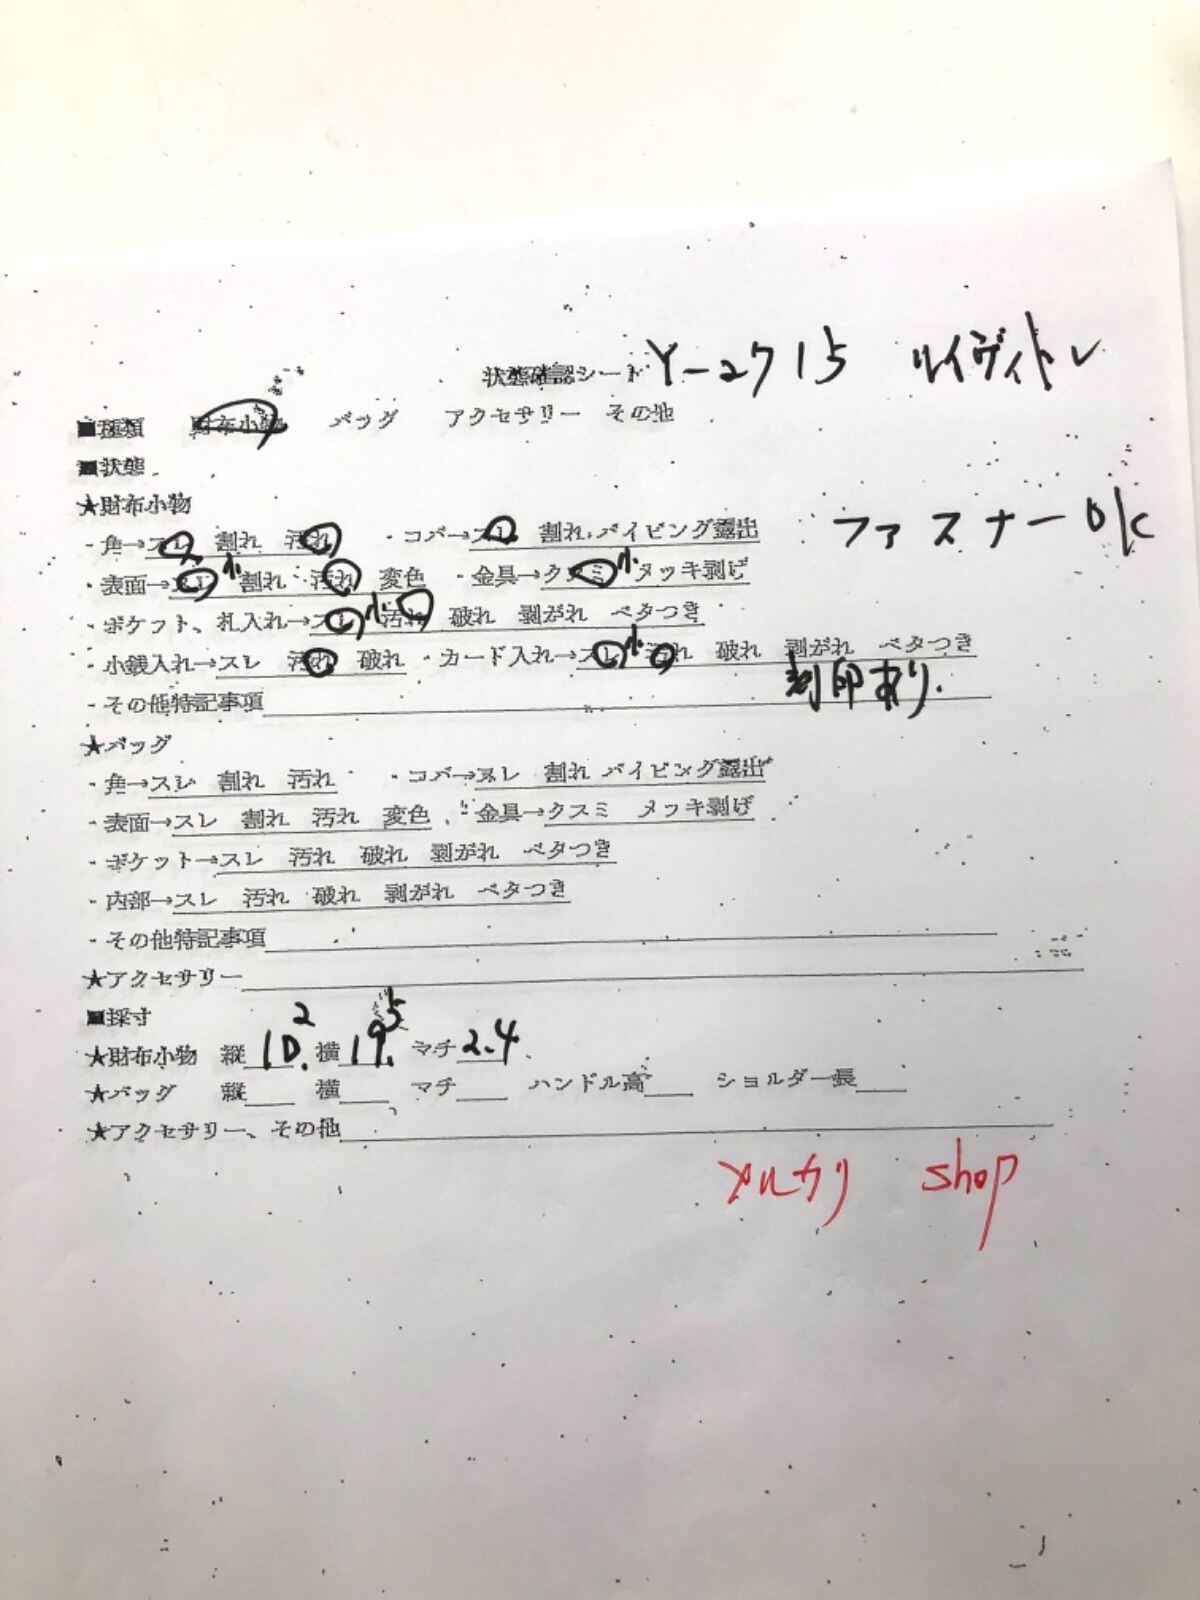 状態確認シート Y-2715 ルイヴィトン
■種類 財布小物 バッグ アクセサリー その他
■状態
★財布小物
ファスナーOK
・角→スレ 割れ 汚れ ・コバ→スレ 割れ パイピング露出
・表面→スレ 小 割れ 汚れ 変色 ・金具→クスミ 小 メッキ剥げ
・ポケット、札入れ→スレ 小 汚れ 破れ 剥がれ ベタつき
・小銭入れ→スレ 汚れ 破れ ・カード入れ→スレ 小 汚れ 破れ 剥がれ ベタつき
・その他特記事項 刻印あり.
★バッグ
・角→スレ 割れ 汚れ ・コバ→スレ 割れ パイピング露出
・表面→スレ 割れ 汚れ 変色 ・金具→クスミ メッキ剥げ
・ポケット→スレ 汚れ 破れ 剥がれ ベタつき
・内部→スレ 汚れ 破れ 剥がれ ベタつき
・その他特記事項
★アクセサリー
■採寸
★財布小物 縦 10.2 横 19.5 マチ 2.4
★バッグ 縦 横 マチ ハンドル高 ショルダー長
★アクセサリー、その他
メルカリ shop